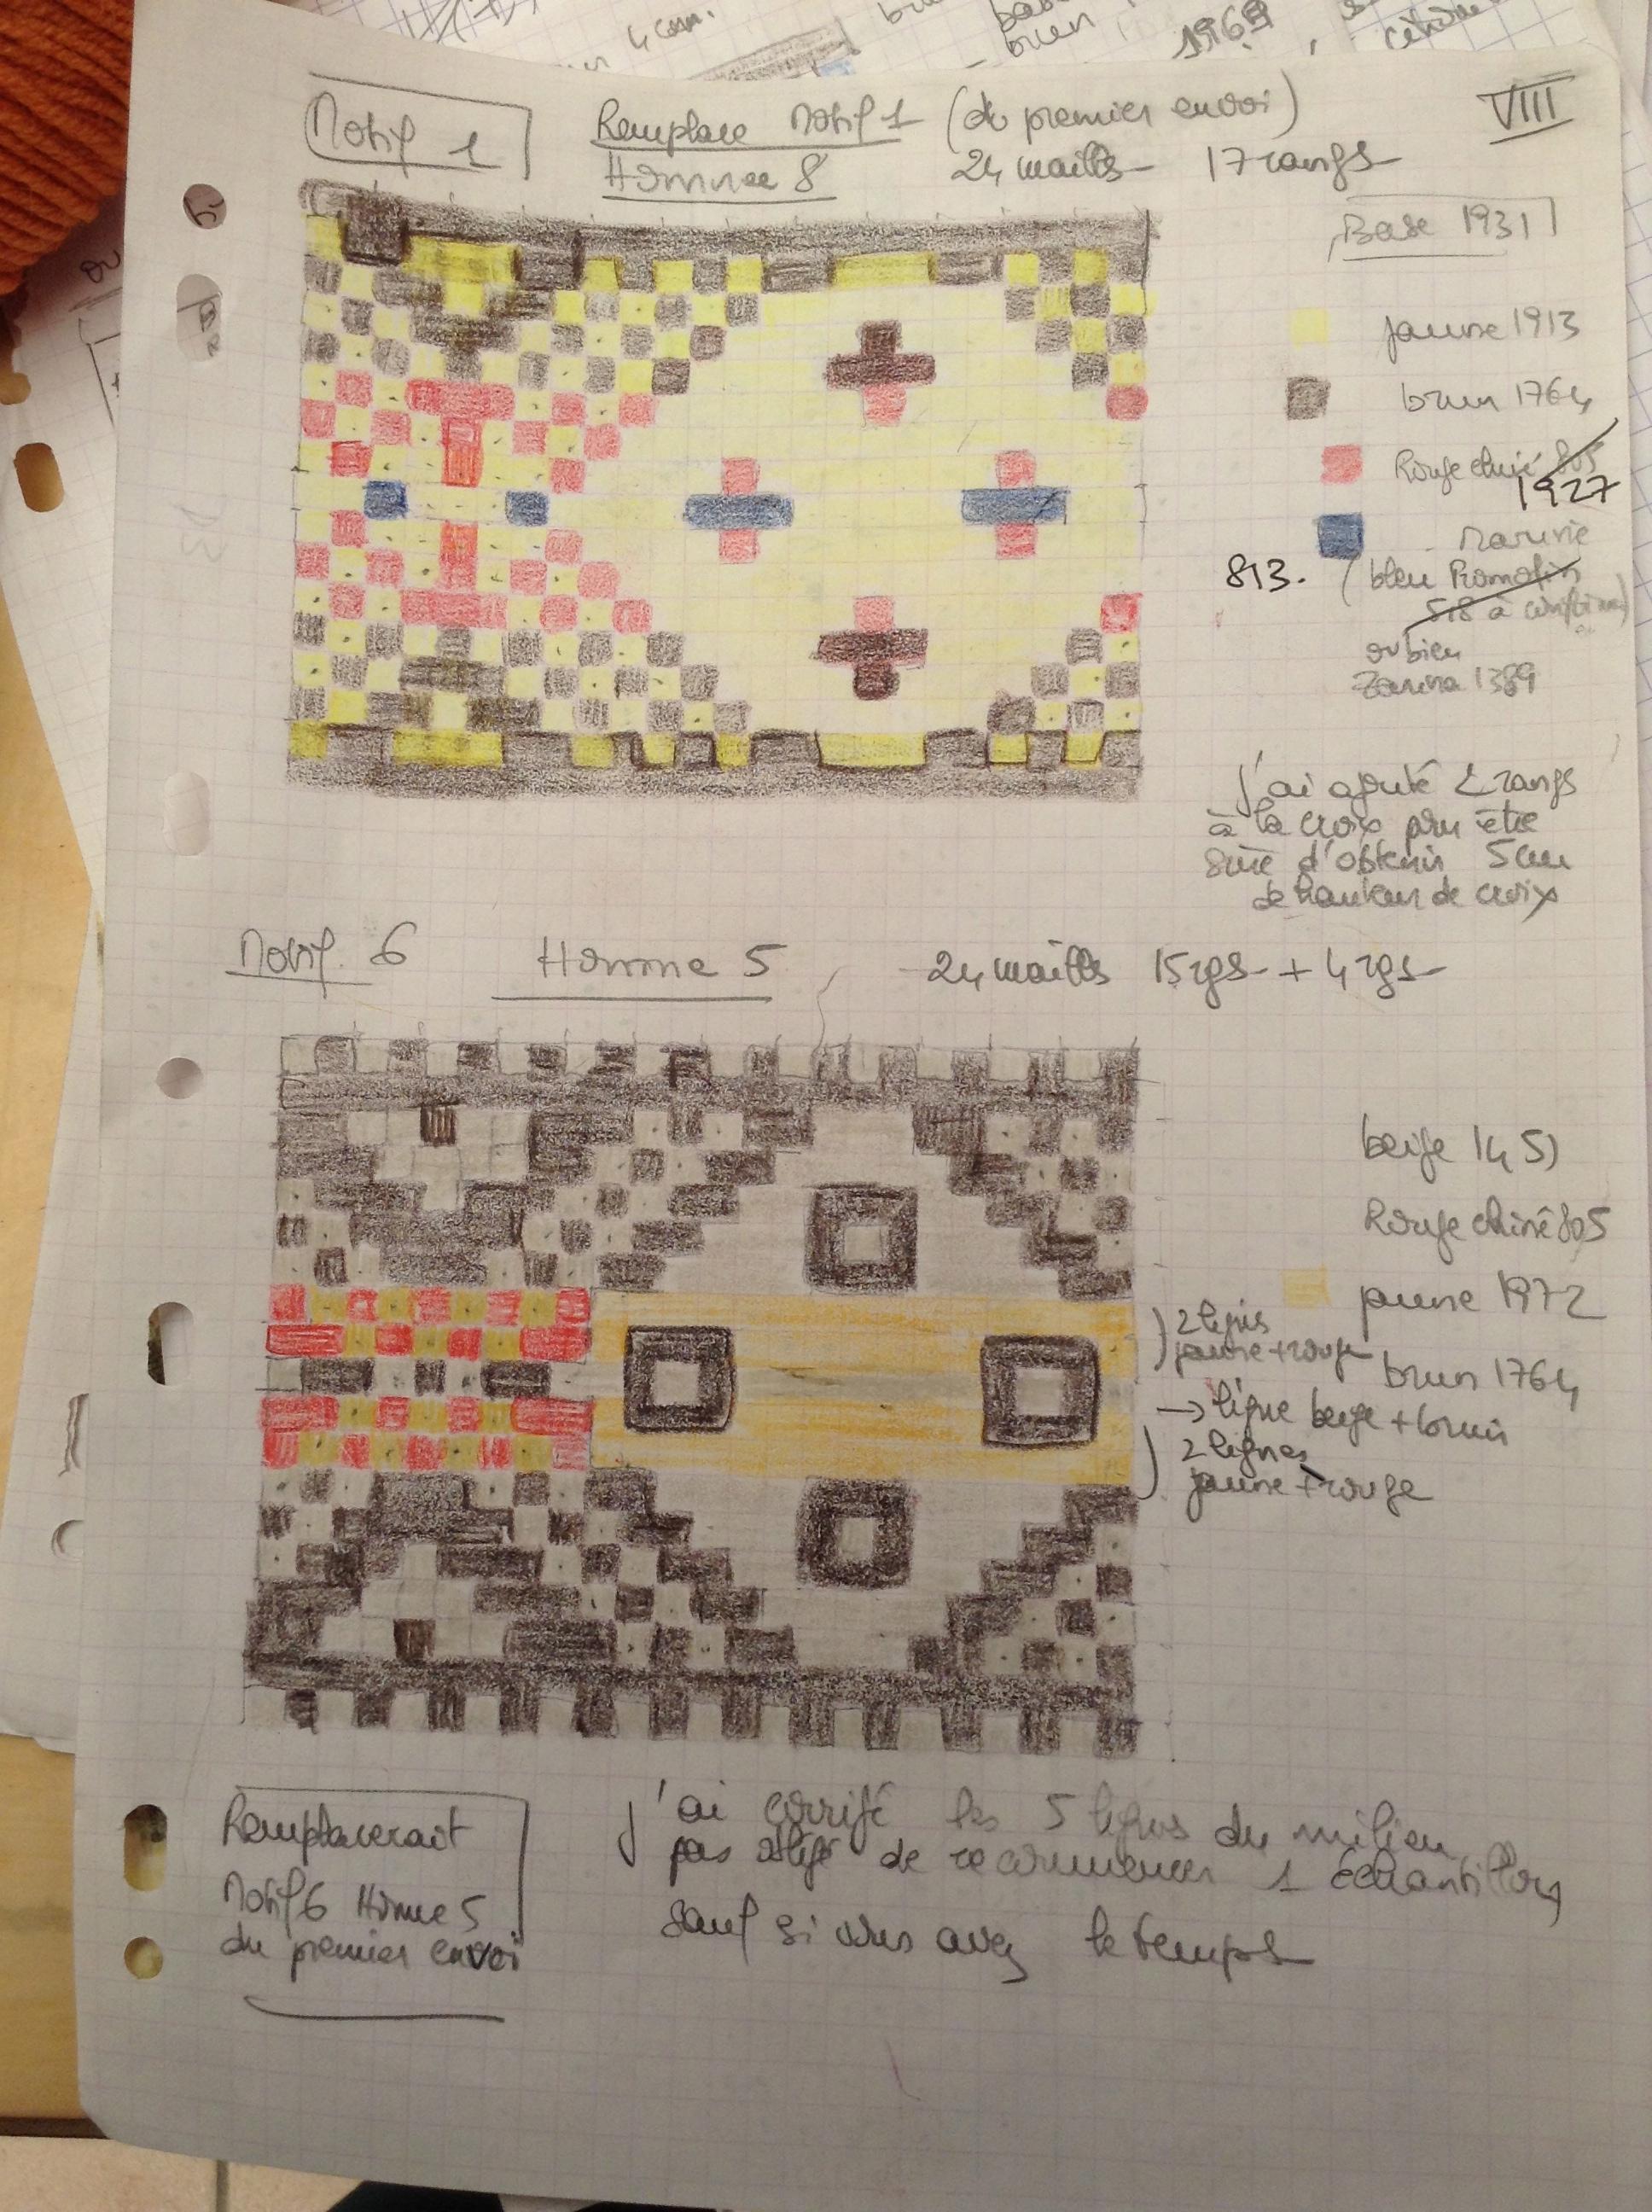 4 cm.
brun
1969
Motif 1
Remplace Motif 1 (du premier envoi)
VIII
Homme 8 24 mailles 17 rangs
Base 1931
jaune 1913
brun 1764
Rouge chiné 805
1927
marine
813. (bleu
518 à
ou bien
Zarina 1389
j'ai ajouté 2 rangs
à la croix pour être
sûre d'obtenir 5 cm
de hauteur de croix
Motif 6 Homme 5 24 mailles 15 rgs + 4 rgs
beige 1451
Rouge chiné 805
jaune 1972
2 lignes
jaune + rouge
brun 1764
→ ligne beige + brun
2 lignes
jaune + rouge
Remplacerait
Motif 6 Homme 5
du premier envoi
j'ai corrigé les 5 lignes du milieu
pas obligé de recommencer 1 échantillon
sauf si vous avez le temps